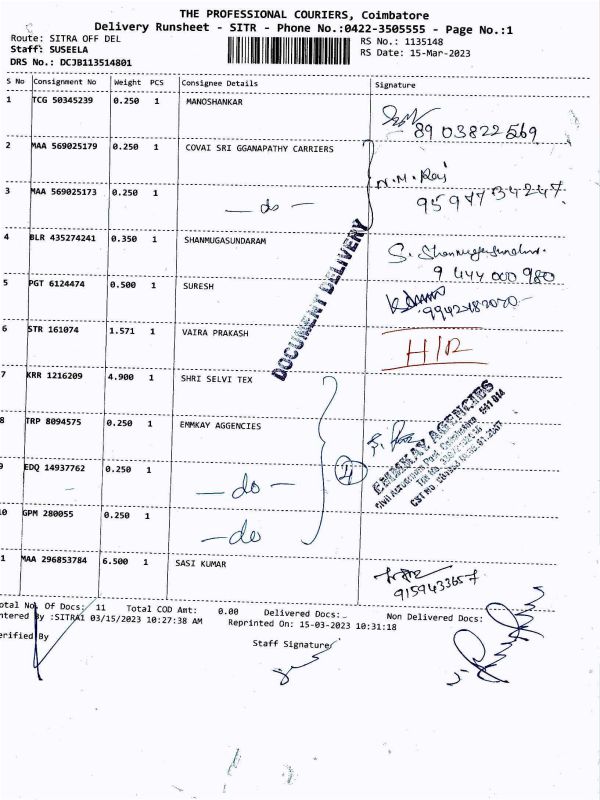 THE PROFESSIONAL COURIERS, Coimbatore
Delivery Runsheet - SITR - Phone No.:0422-3505555 - Page No.:1
Route: SITRA OFF DEL
RS No.: 1135148
Staff: SUSEELA
RS Date: 15-Mar-2023
DRS No.: DCJB113514801
S No Consignment No Weight PCS Consignee Details Signature
1 TCG 50345239 0.250 1 MANOSHANKAR
8903822569
2 MAA 569025179 0.250 1 COVAI SRI GGANAPATHY CARRIERS
N.M. Raj
3 MAA 569025173 0.250 1 — do —
DOCUMENT DELIVERY
4 BLR 435274241 0.350 1 SHANMUGASUNDARAM S. Shanmugasundar
9 444 000 980
5 PGT 6124474 0.500 1 SURESH
6 STR 161074 1.571 1 VAIRA PRAKASH H/R
7 KRR 1216209 4.900 1 SHRI SELVI TEX
8 TRP 8094575 0.250 1 EMMKAY AGGENCIES
EMMKAY AGENCIES
9 EDQ 14937762 0.250 1 — do — 4
10 GPM 280055 0.250 1 — do
1 MAA 296853784 6.500 1 SASI KUMAR
9159433657
otal No. Of Docs: 11 Total COD Amt: 0.00 Delivered Docs: Non Delivered Docs:
ntered By :SITRA1 03/15/2023 10:27:38 AM Reprinted On: 15-03-2023 10:31:18
erified By
Staff Signature